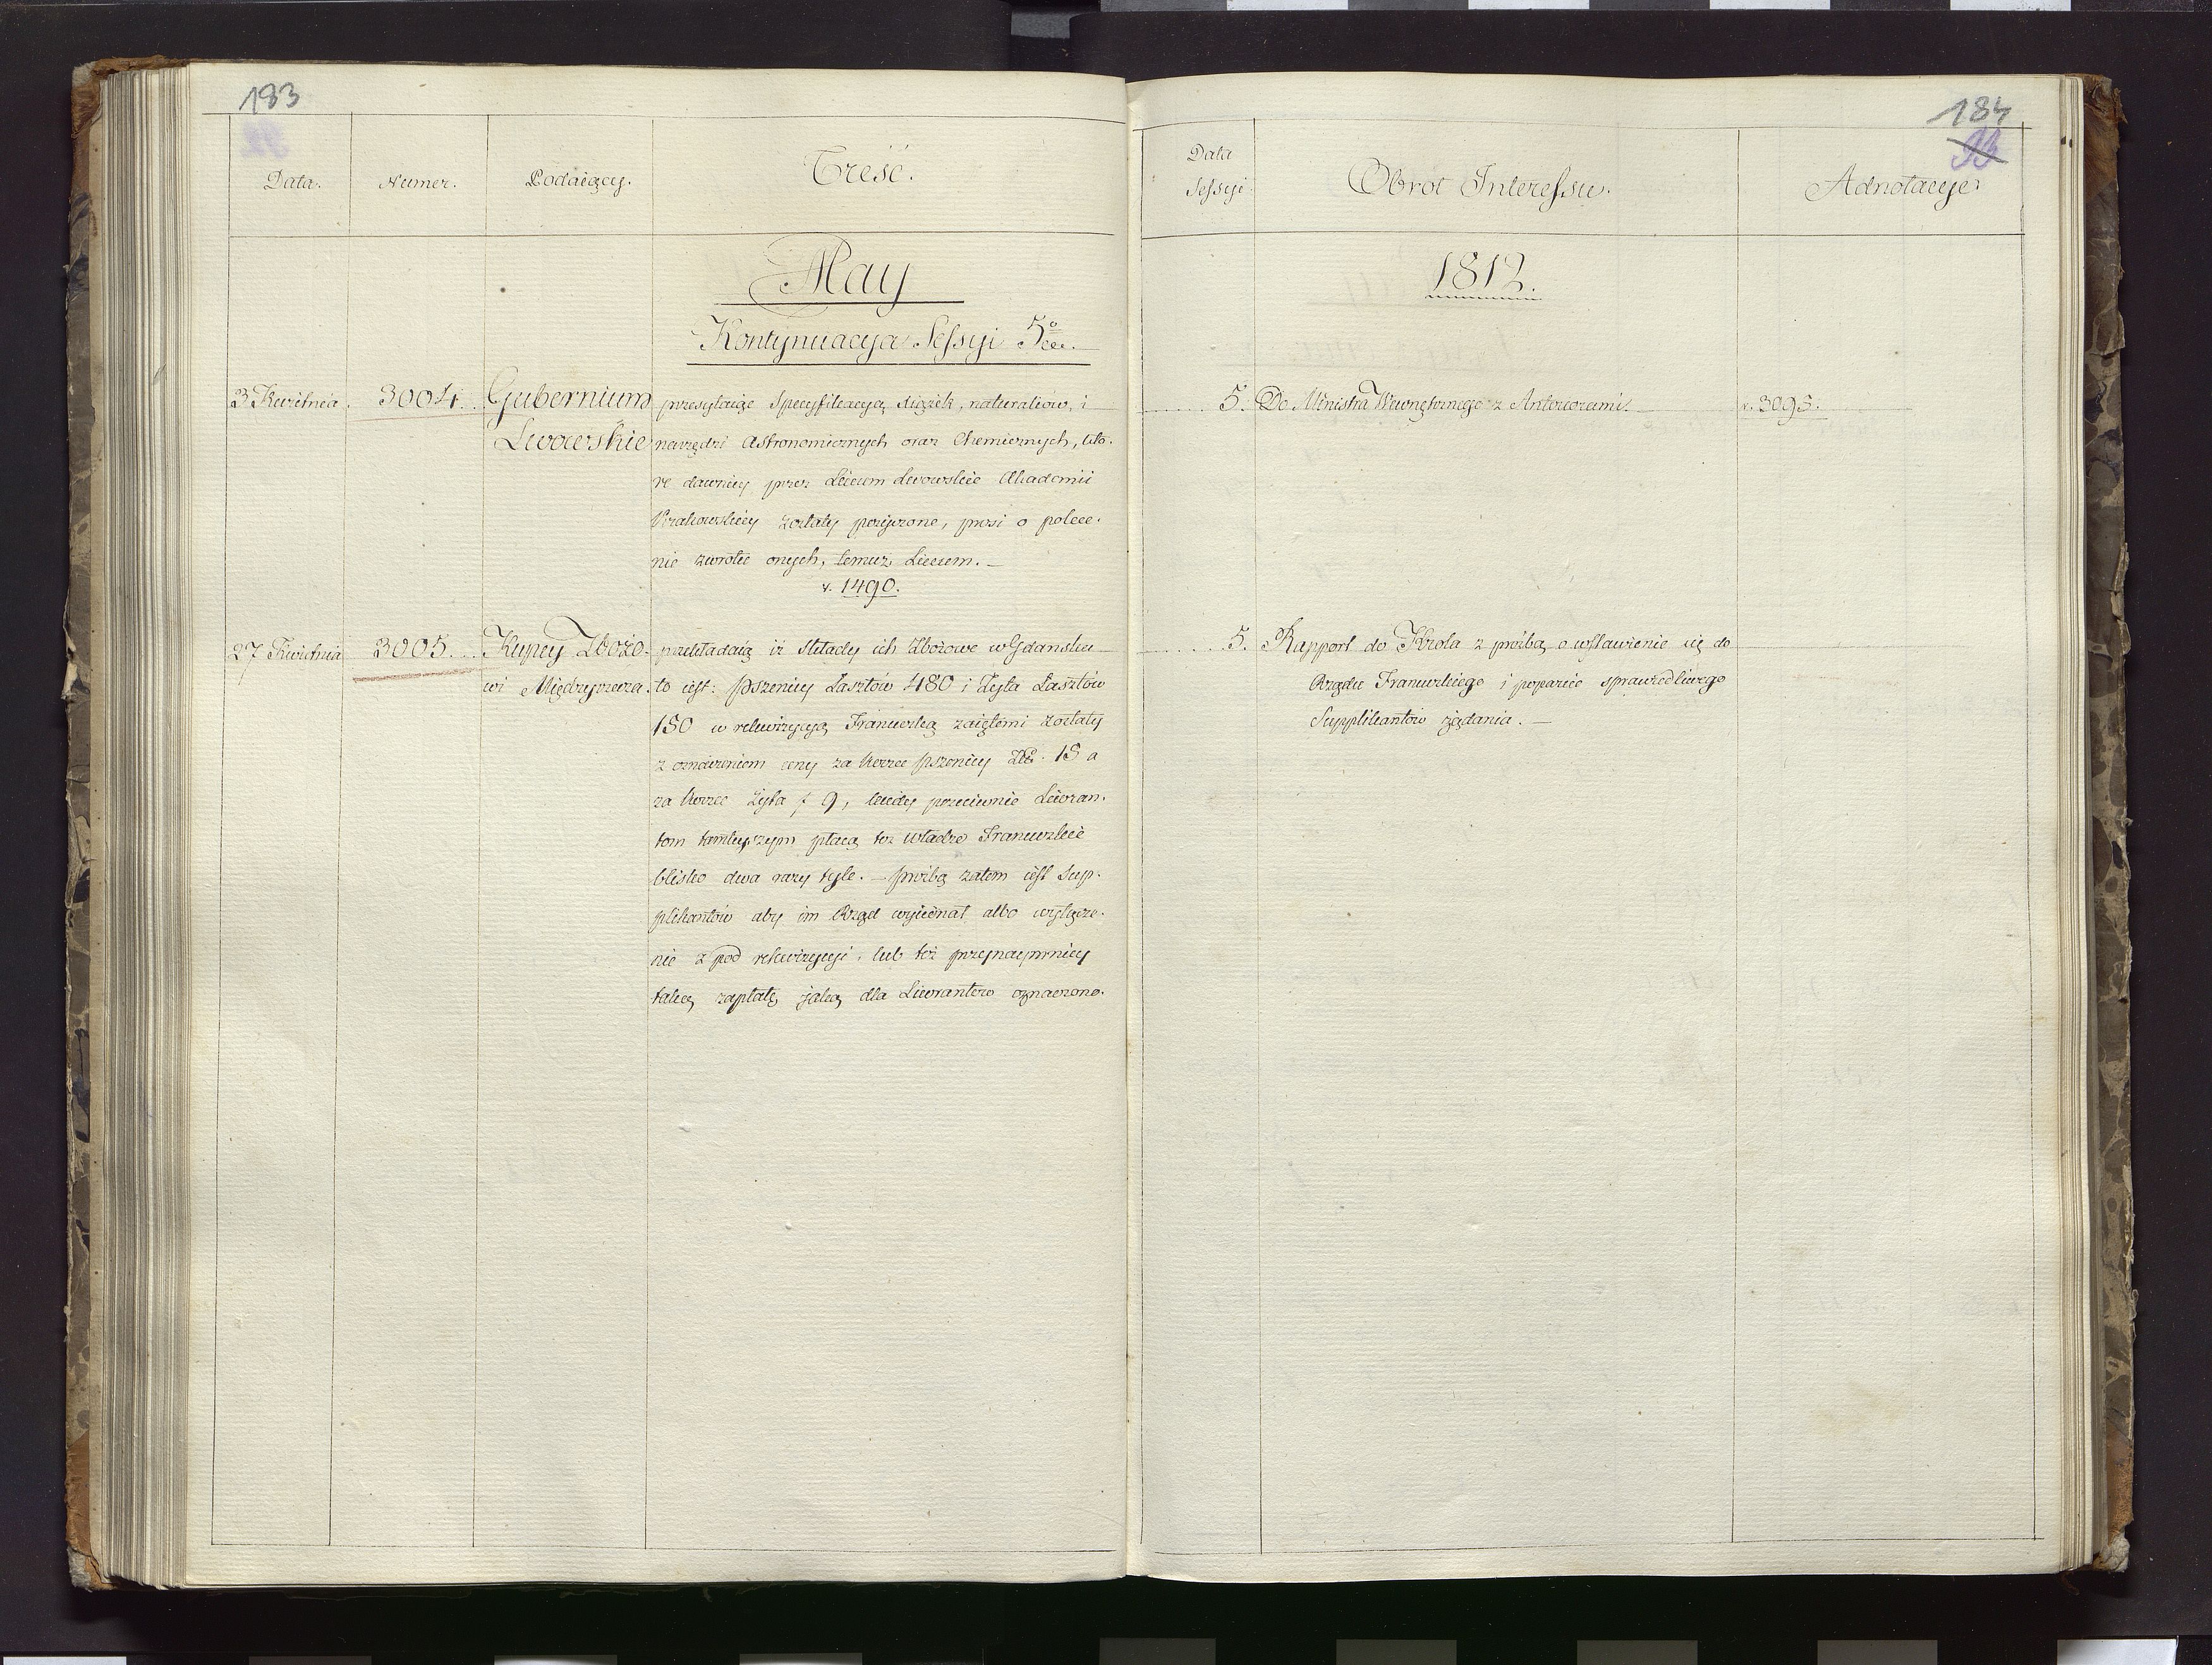 183
Data.
Numer.
Podaiący.
Treść.
May
Kontynuacya Sessyi 5
3 Kwietnia
3004.
Gubernium
Lwowskie
przesyłaiąc Specyfikacyą xiążek, naturaliów, i
narzędzi Astronomicznych oraz Chemicznych, któ-
re dawniey przez Liceum Lwowskie Akademii
Krakowskiey zostały pożyczone, prosi o polece-
nie zwrotu onych, temuż Liceum. —
v. 1490.
27 Kwietnia
3005.
Kupcy Zbożo-
wi Międzyrzecza.
przekładaią iż składy ich zbożowe w Gdańsku
to iest: pszenicy Łasztów 480 i Żyta Łasztów
150 w rekwizycyą Francuską zaiętemi zostały
z oznaczeniem ceny za korzec pszenicy Zł. 18 a
za korzec żyta f 9, kiedy przeciwnie Liweran-
tom tamteyszym płacą też władze Francuzkie
blisko dwa razy tyle. — prożbą zatem iest Sup-
plikantów aby im Rząd wyiednał albo wyłącze-
nie z pod rekwizycyi, lub też przynaymniey
taką zapłatę jaką dla Liwerantów oznaczono.
184
33
Data
Sessyi
Obrot Interessu.
Adnotacye
1812.
5.
Do Ministra Wewnętrznego z Anteriorami.
v. 3093.
5.
Rapport do Króla z proźbą o wstawienie się do
Rządu Francuzkiego i poparcie sprawiedliwego
Supplikantów żądania. —